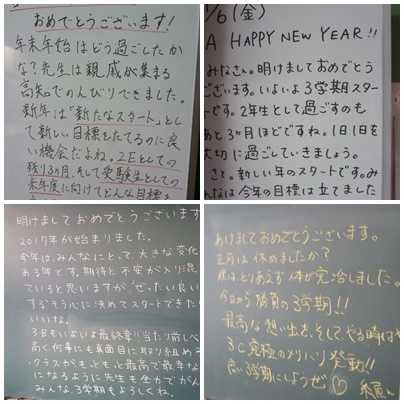 おめでとうございます!
年末年始はどう過ごしたか
な?先生は親戚が集まる
高知でのんびりできました。
新年は"新たなスタート"とし
て新しい目標をたてるのに良
い機会だよね。2Eとしての
残り3ヶ月、そして受験生としての
来年度に向けてどんな目標を
1/6(金)
A HAPPY NEW YEAR!!
みなさん。明けましておめでとう
ございます。いよいよ3学期スタート
です。2年生として過ごすのも
あと3ヶ月ほどですね。1日1日を
大切に過ごしていきましょう。
さて。新しい年のスタートです。みん
なは今年の目標は立てました
明けましておめでとうございます
2017年が始まりました。
今年は、みんなにとって、大きな変化の
ある年です。期待と不安が入り混
っていると思いますが
する"そう心に決めてスタートできたら
いいな。
3Bもいよいよ最終章!!当たり前レベル
高く何事にも真面目に取り組める
クラスがもっともっと最高で最幸な
になるように先生も全力でがん
みんな3学期もよろしくね。
あけましておめでとうございます。
正月は休めましたか?
僕はとりあえず体が完治しました。
今日から勝負の3学期!!
最高な想い出を、そして、やる時は
3C究極のメリハリ発動!!
良い3学期にしようぜ♡